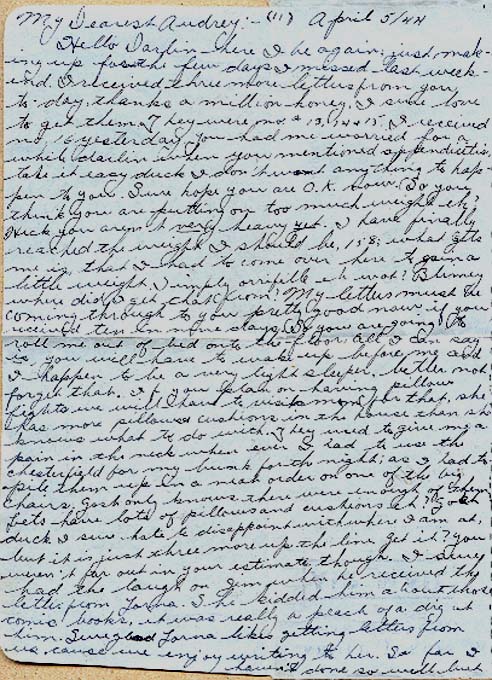 My Dearest Audrey:- (11) April 5/44
Hello Darlin- here I be again; just mak-
ing up for the few days I missed last week-
end. I received three more letters from you
to-day, thanks a million honey, I sure love
to get them. They were no's 13, 14 & 15. I received
no. 16 yesterday. You had me worried for a
while darlin when you mentioned appendicitis,
take it easy duck I don't want anything to hap-
pen to you. Sure hope you are O.K. now. So you
think you are putting on too much weight eh?
Heck you aren't very heavy yet. I have finally
reached the weight I should be, 158; what gets
me is, that I had to come over here to gain a
little weight, simply orrifble eh wot? Blimey
where did I get that from? My letters must be
coming through to you pretty good now, if you
received ten in five days. So you are going to
roll me out of bed onto the floor. All I can say
is you will have to wake up before me and
I happen to be a very light sleeper, better not
forget that. If you plan on having pillow
fights we will have to visit mom for that, she
has more pillows & cushions in the house than she
knows what to do with. They used to give me a
pain in the neck when ever I had to use the
chesterfield for my bunk for th night; as I had to
pile them up in a neat order on one of the big
chairs, gosh only knows there were enough of them.
Lets have lots of pillows and cushions eh?
duck I sure hate to disappoint with where I am at,
but it is just three more up the line get it? you
weren't far out in your estimate though. I sure
had the laugh on Jim when he received the
letter from Lorna. She kidded him about those
comic books, it was really a peach of a dig at
him. Sure glad Lorna likes getting letters from
us cause we enjoy writing to her. So far I
haven't done so well but